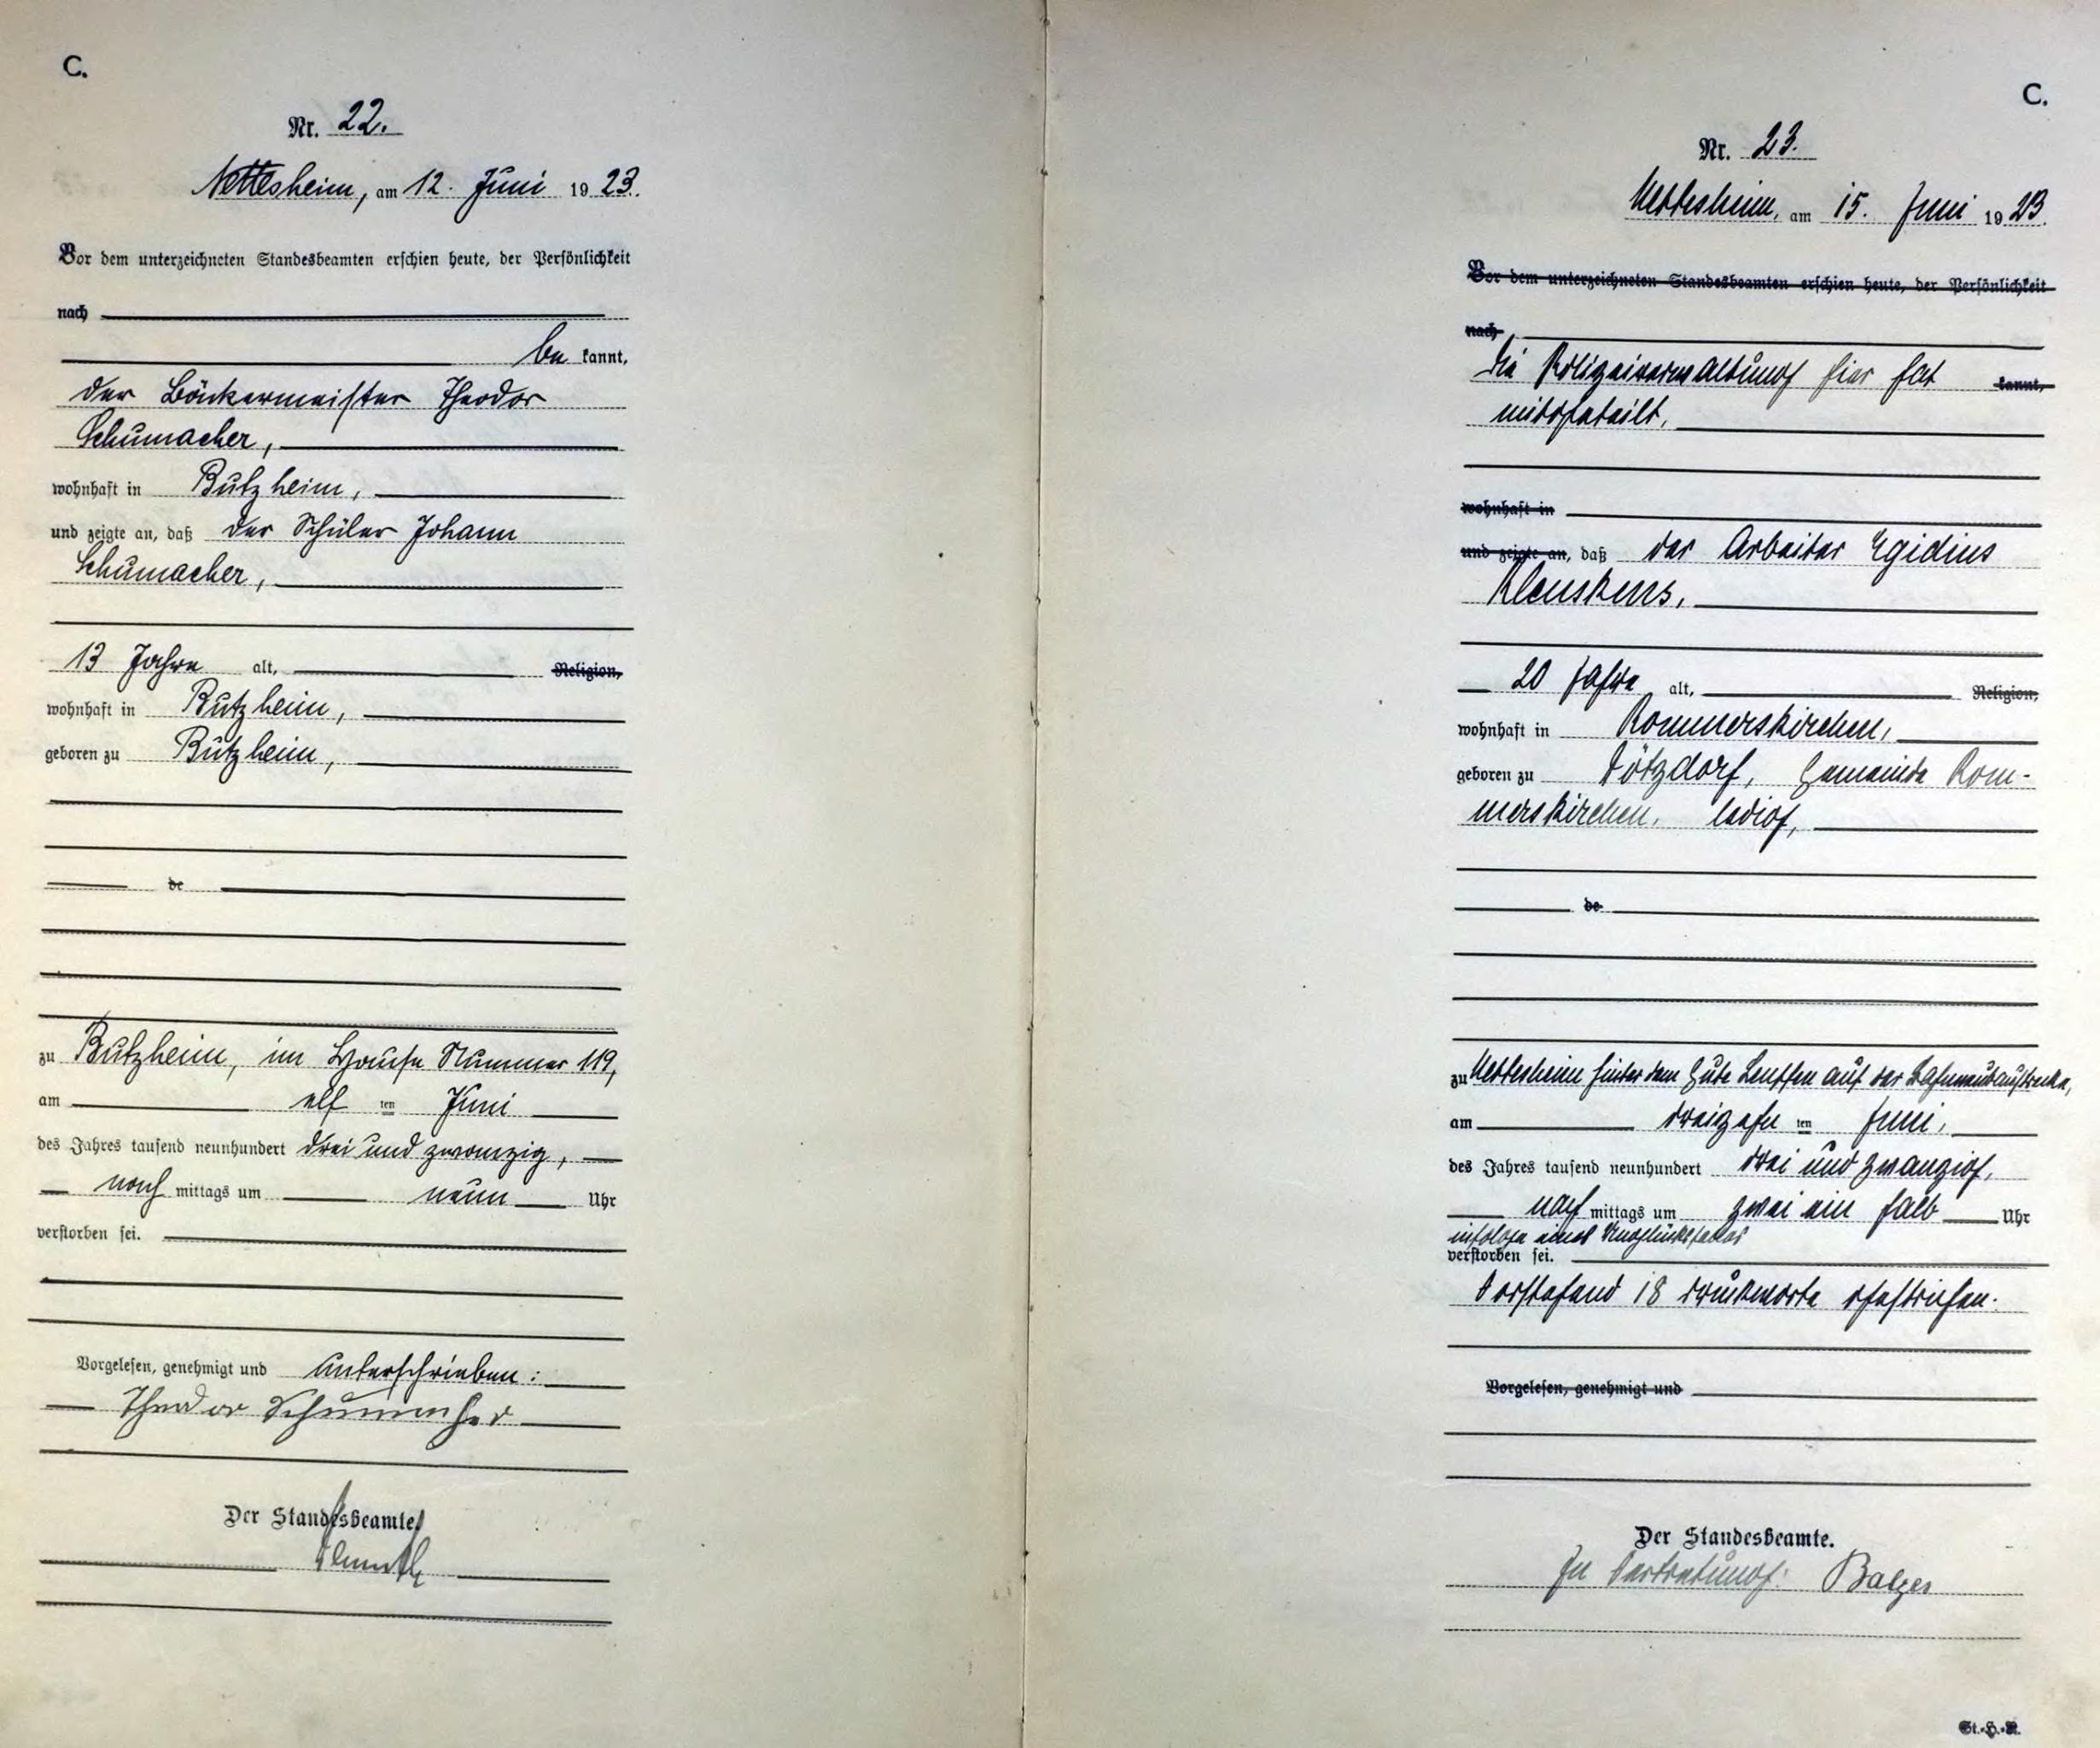 C.
Nr. 22.
Nettesheim, am 12. Juni 1923.
Vor dem unterzeichneten Standesbeamten erschien heute, der Persönlichkeit
nach
be kannt,
der Bäckermeister Theodor
Schumacher,
wohnhaft in Butzheim,
und zeigte an, daß der Schüler Johann
Schumacher,
13 Jahre alt, Religion,
wohnhaft in Butzheim,
geboren zu Butzheim,
de
zu Butzheim, im Hause Nummer 119,
am elf ten Juni
des Jahres tausend neunhundert drei und zwanzig,
nach mittags um neun Uhr
verstorben sei.
Vorgelesen, genehmigt und unterschrieben:
Theodor Schumacher
Der Standesbeamte.
C.
Nr. 23.
Nettesheim, am 15. Juni 1923.
Vor dem unterzeichneten Standesbeamten erschien heute, der Persönlichkeit
nach
Die Polizeiverwaltung hier hat kannt,
mitgeteilt,
wohnhaft in
und zeigte an, daß der Arbeiter Egidius
Kleuskens,
20 Jahre alt, Religion,
wohnhaft in Rommerskirchen,
geboren zu Vötzdorf, Gemeinde Rom-
merskirchen, ledig,
de
zu Nettesheim hinter dem Gute auf der Bahnneubaustrecke,
am dreizehn ten Juni,
des Jahres tausend neunhundert drei und zwanzig,
nach mittags um zwei ein halb Uhr
infolge eines Unglücksfalles
verstorben sei.
Vorstehend 18 Druckworte gestrichen.
Vorgelesen, genehmigt und
Der Standesbeamte.
In Vertretung: Balzer
St.-H.-R.